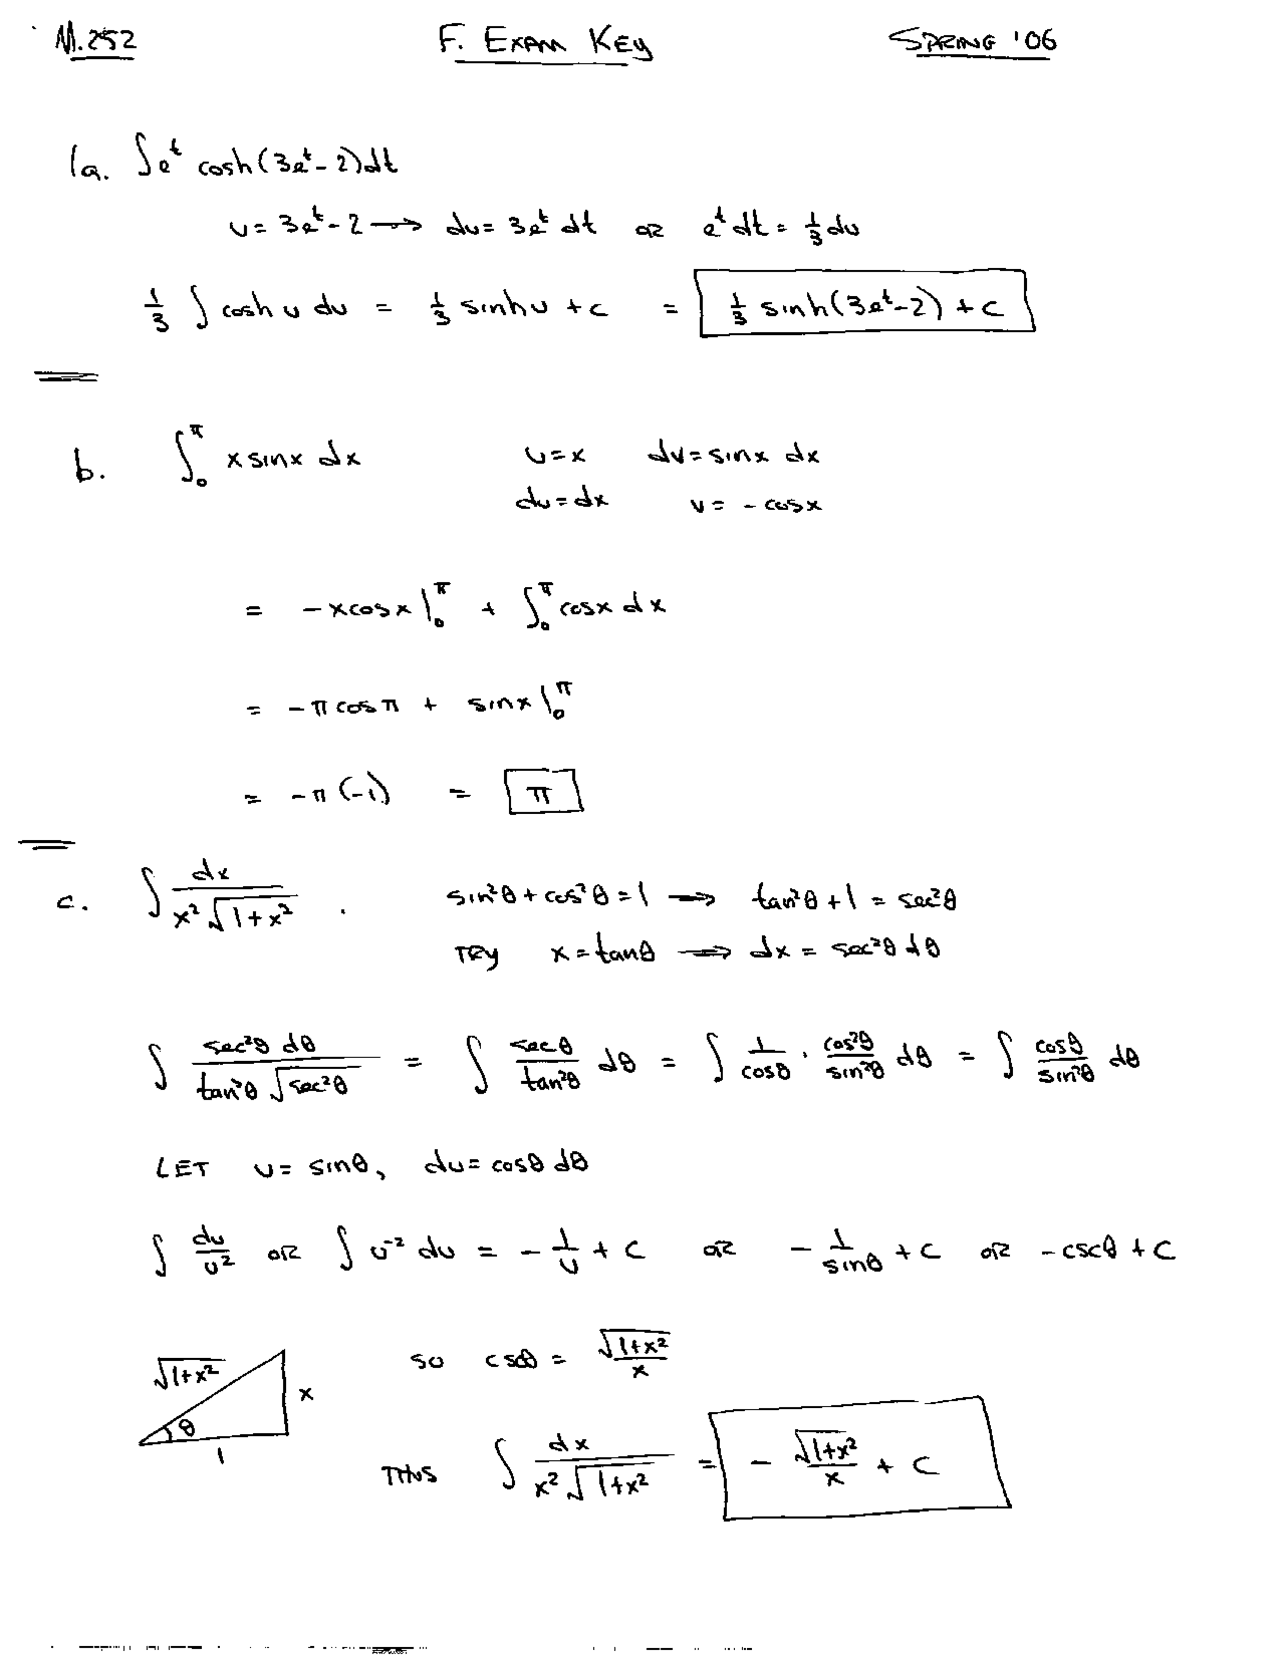 M.252 F. EXAM KEY SPRING '06
1a. ∫e^t cosh(3e^t-2)dt
u=3e^t-2 → du=3e^t dt OR e^t dt = 1/3 du
1/3 ∫ cosh u du = 1/3 sinh u + c = 1/3 sinh(3e^t-2) + c
b. ∫_0^π x sinx dx u=x dv=sinx dx
du=dx v= -cosx
= -xcosx |_0^π + ∫_0^π cosx dx
= -π cos π + sinx |_0^π
= -π(-1) = π
c. ∫ dx/(x²√(1+x²)) . sin²θ+cos²θ=1 → tan²θ+1 = sec²θ
TRY x=tanθ → dx = sec²θ dθ
∫ sec²θ dθ/(tan²θ √(sec²θ)) = ∫ secθ/tan²θ dθ = ∫ 1/cosθ · cos²θ/sin²θ dθ = ∫ cosθ/sin²θ dθ
LET u= sinθ, du=cosθ dθ
∫ du/u² OR ∫ u^-2 du = - 1/u + C OR - 1/sinθ + C OR -cscθ + C
√(1+x²) x θ 1
so cscθ = √(1+x²)/x
THUS ∫ dx/(x²√(1+x²)) = - √(1+x²)/x + C